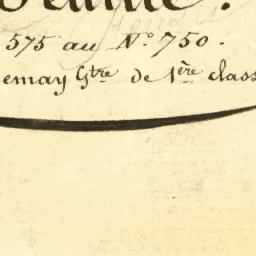 575 au N.º 750.
emay Gtre de 1ère class